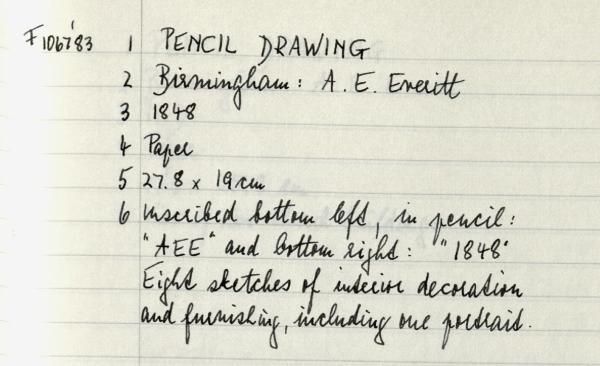 F106'83 1 PENCIL DRAWING
2 Birmingham: A. E. Everitt
3 1848
4 Paper
5 27.8 x 19cm
6 inscribed bottom left, in pencil:
"AEE" and bottom right: "1848"
Eight sketches of interior decoration
and furnishing, including one portrait.